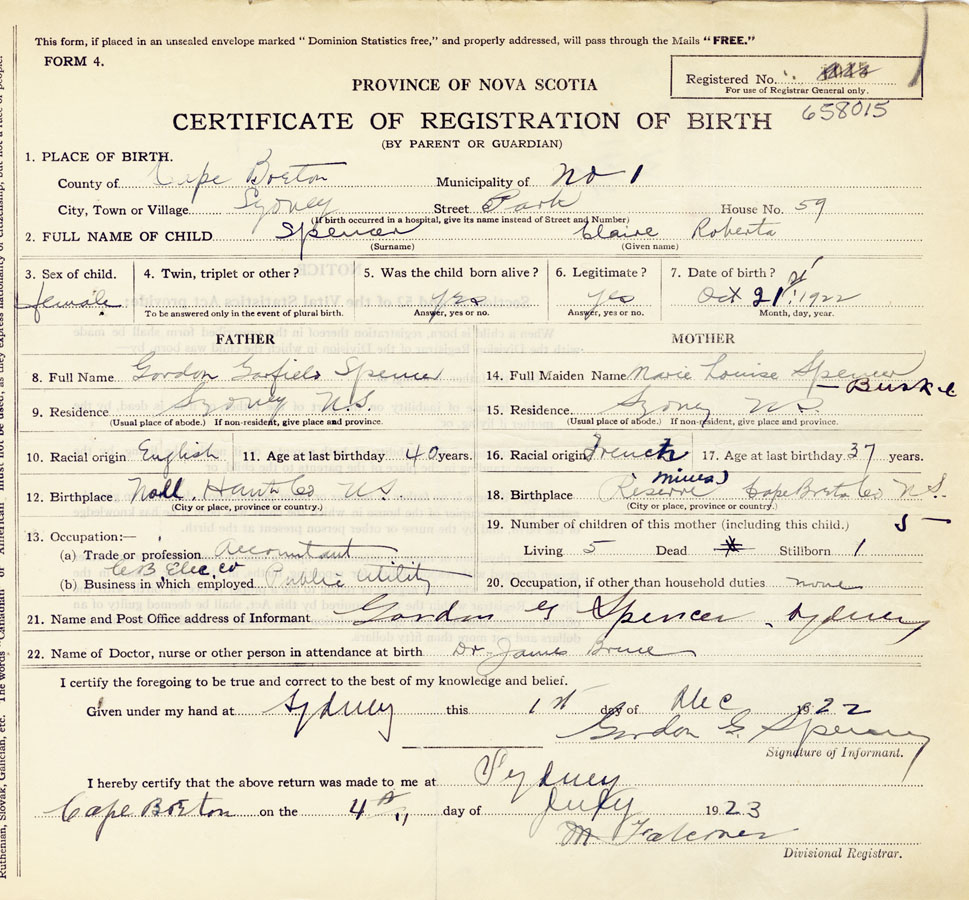 This form, if placed in an unsealed envelope marked "Dominion Statistics free," and properly addressed, will pass through the Mails "FREE."
FORM 4.
PROVINCE OF NOVA SCOTIA
Registered No.
For use of Registrar General only.
658015
CERTIFICATE OF REGISTRATION OF BIRTH
(BY PARENT OR GUARDIAN)
1. PLACE OF BIRTH.
County of Cape Breton Municipality of No 1
City, Town or Village Sydney Street Park House No. 59
(If birth occurred in a hospital, give its name instead of Street and Number)
2. FULL NAME OF CHILD Spencer Claire Roberta
(Surname) (Given name)
3. Sex of child. 4. Twin, triplet or other? 5. Was the child born alive? 6. Legitimate? 7. Date of birth?
female Yes Yes Oct 21st 1922
To be answered only in the event of plural birth. Answer, yes or no. Answer, yes or no. Month, day, year.
FATHER MOTHER
8. Full Name Gordon Garfield Spencer 14. Full Maiden Name Marie Louise Spencer
— Burke
9. Residence Sydney N.S. 15. Residence Sydney N.S.
(Usual place of abode.) If non-resident, give place and province. (Usual place of abode.) If non-resident, give place and province.
10. Racial origin English 11. Age at last birthday 40 years. 16. Racial origin French 17. Age at last birthday 37 years.
12. Birthplace Noel, Hants Co N.S. 18. Birthplace Reserve Mines Cape Breton Co N.S.
(City or place, province or country.) (City or place, province or country.)
19. Number of children of this mother (including this child.) 5 —
13. Occupation:—
(a) Trade or profession Accountant Living 5 Dead Stillborn 1
C B Elec. Co
(b) Business in which employed Public Utility 20. Occupation, if other than household duties none
21. Name and Post Office address of Informant Gordon G Spencer, Sydney
22. Name of Doctor, nurse or other person in attendance at birth Dr. James Bruce
I certify the foregoing to be true and correct to the best of my knowledge and belief.
Given under my hand at Sydney this 1st day of Dec 1922
Gordon G. Spencer
Signature of Informant.
I hereby certify that the above return was made to me at Sydney
Cape Breton on the 4th day of July 1923
M Falconer
Divisional Registrar.